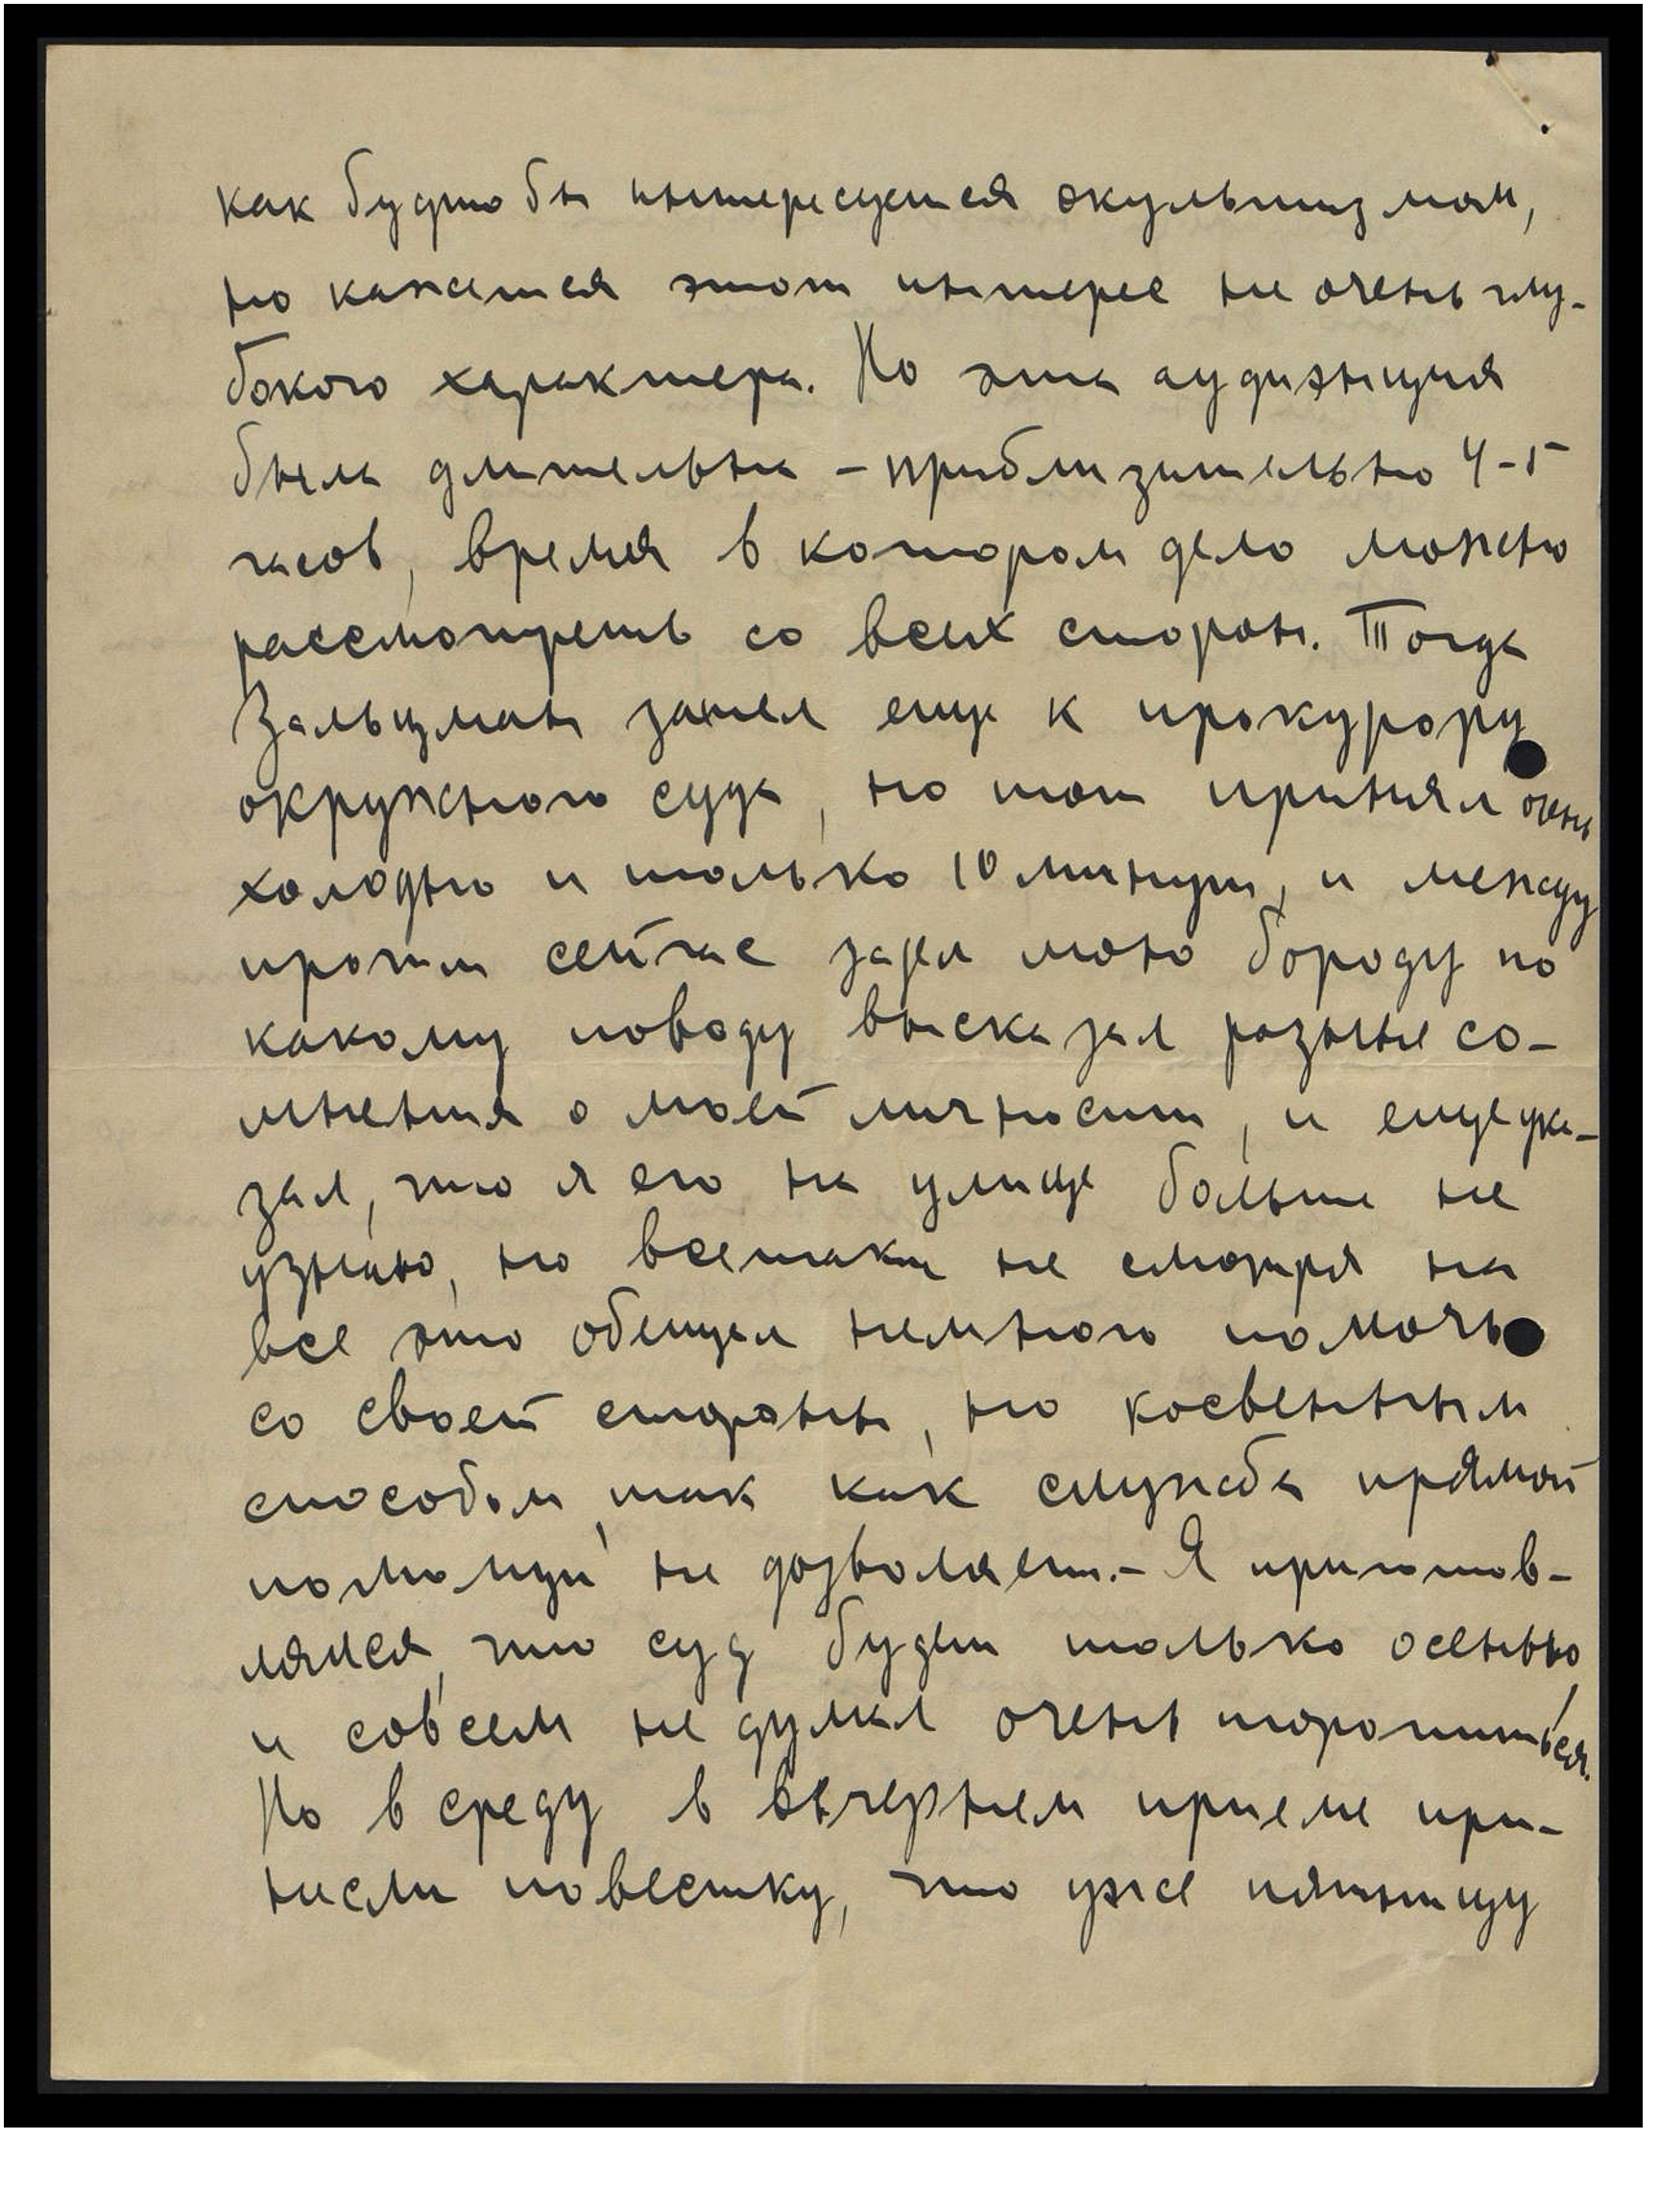 как будто бы интересуется окультизмом,
но кажется этот интерес не очень глу-
бокого характера. Но эта аудиэнция
была длительна – приблизительно 4-5
часов, время в котором дело можно
рассмотреть со всех сторон. Тогда
Зальцман зашел еще к прокурору
окружного суда, но тот принял очень
холодно и только 10 минут, и между
протим сейчас задел мою бороду по
какому поводу высказал разные со-
мнения о моей личности, и еще ука-
зал, что я его на улице больше не
узнаю, но всетаки не смотря на
все это обещал немного помочь
со своей стороны, но косвенным
способом, так как служба прямой
помощи не дозволяет. – Я приготов-
лялся, что суд будет только осенью
и совсем не думал очень торопиться.
Но в среду в вечернем приеме при-
несли повестку, что уже пятницу